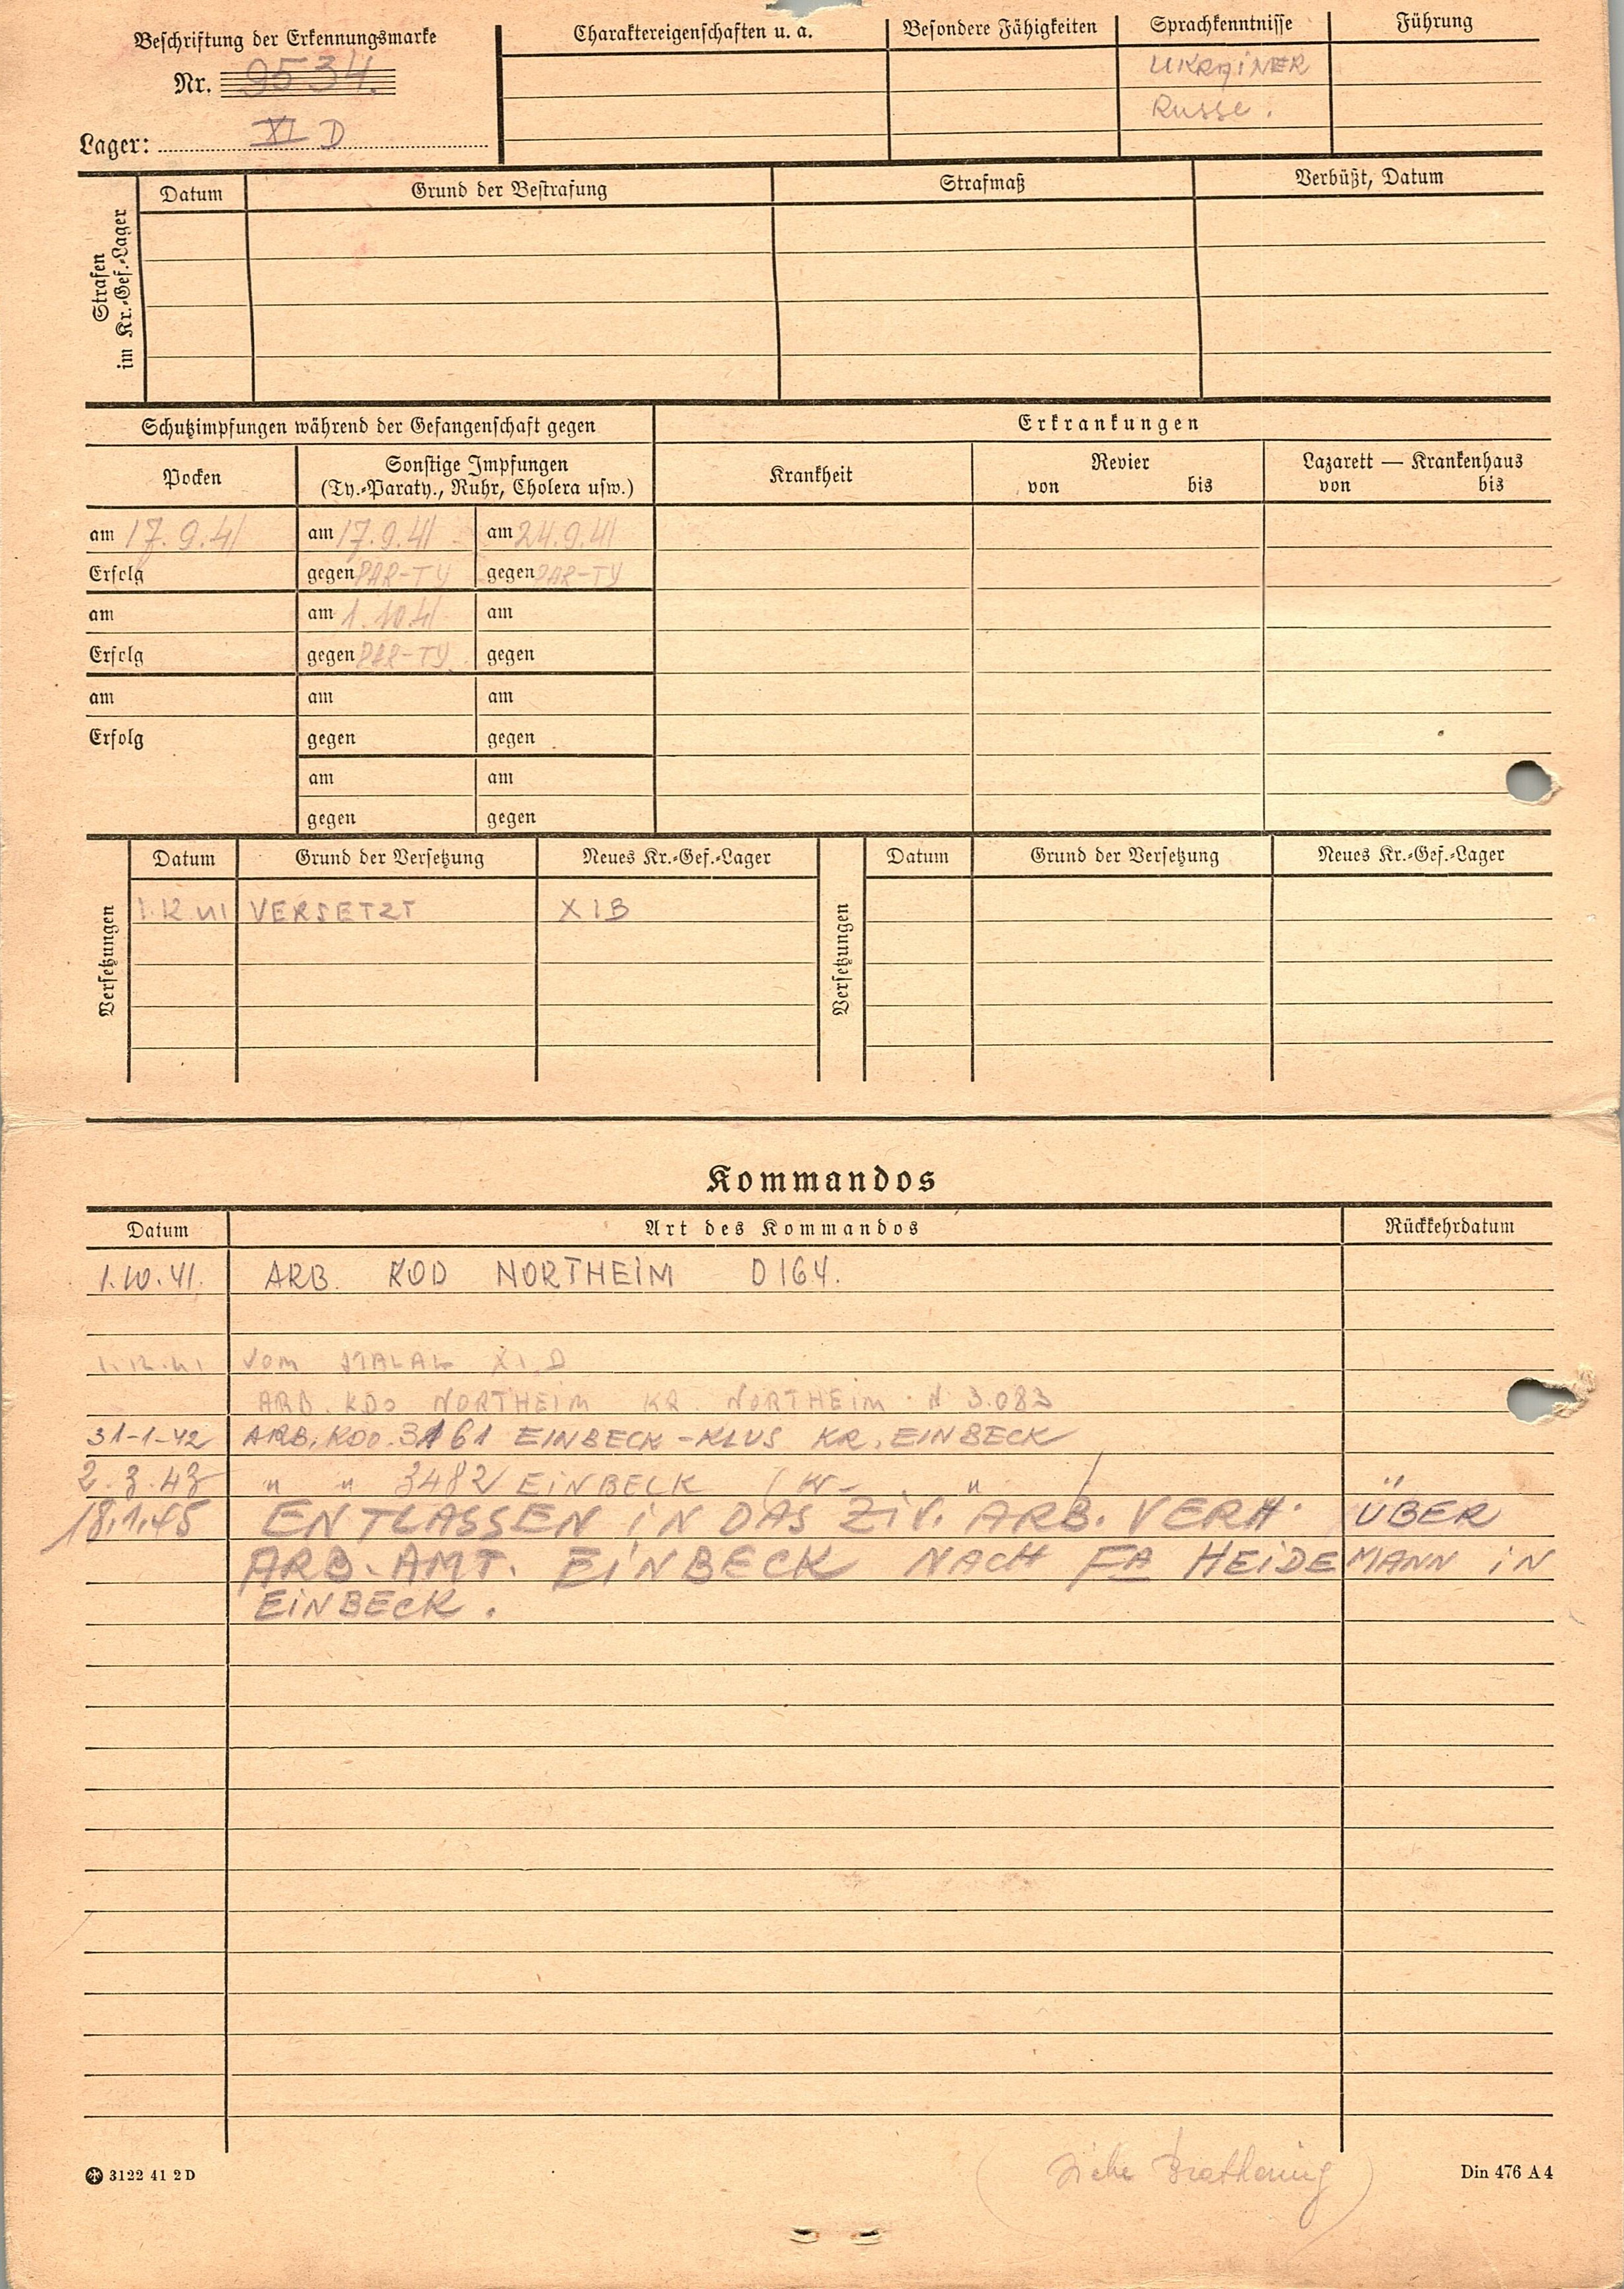 Beschriftung der Erkennungsmarke
Nr. 9534.
Lager: XI D
Charaktereigenschaften u. a.
Besondere Fähigkeiten
Sprachkenntnisse
UKRAiNER
Russe.
Führung
Strafen im Kr.-Gef.-Lager
Datum Grund der Bestrafung Strafmaß Verbüßt, Datum
Schutzimpfungen während der Gefangenschaft gegen
Erkrankungen
Pocken
Sonstige Impfungen
(Ty.-Paraty., Ruhr, Cholera usw.)
Krankheit
Revier
von bis
Lazarett — Krankenhaus
von bis
am 17.9.41 am 17.9.41 am 24.9.41
Erfolg gegen PAR-TY gegen PAR-TY
am am 1.10.41 am
Erfolg gegen PAR-TY gegen
am am am
Erfolg gegen gegen
am am
gegen gegen
Versetzungen
Datum Grund der Versetzung Neues Kr.-Gef.-Lager
1.12.41 VERSETZT XIB
Versetzungen
Datum Grund der Versetzung Neues Kr.-Gef.-Lager
Kommandos
Datum Art des Kommandos Rückkehrdatum
1.10.41. ARB. KOD NORTHEiM D164.
1.12.41 VOM STALAG XI D
ARB. KDO NORTHEiM KR. NORTHEiM N 3.083
31-1-42 ARB. KDO. 3161 EINBECK-KLUS KR. EINBECK
2.3.43 " " 3482 EiNBECK (Kr. " )
18.1.45 ENTLASSEN iN DAS Ziv. ARB. VERH. ÜBER
ARB. AMT. EiNBECK NACH FA HEiDEMANN iN
EiNBECK.
3122 41 2 D
(siehe )
Din 476 A 4